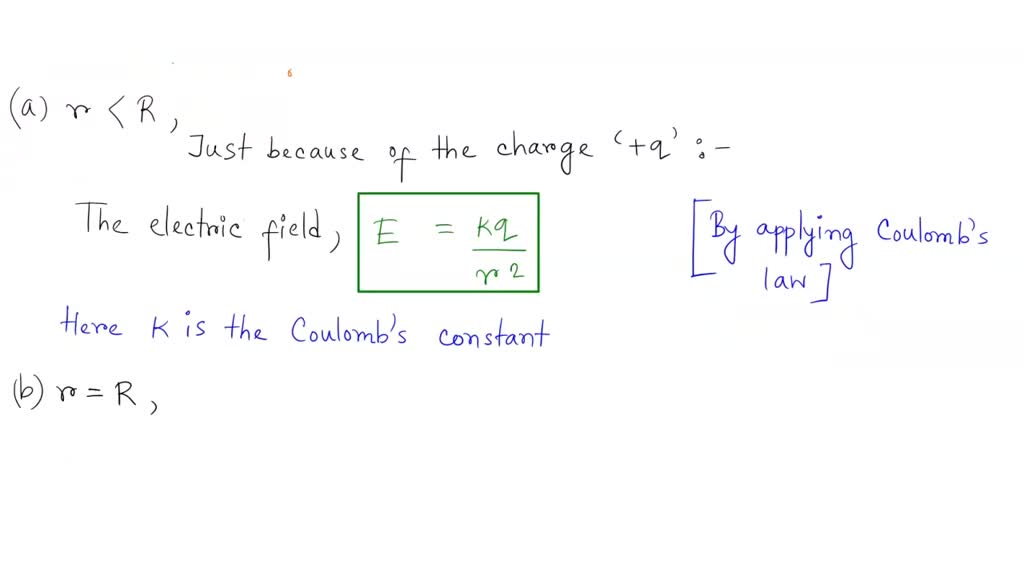 6
(a) r < R,
Just because of the charge ‘+q’ :-
The electric field, E = kq / r²
[By applying Coulomb's law]
Here K is the Coulomb's constant
(b) r = R,